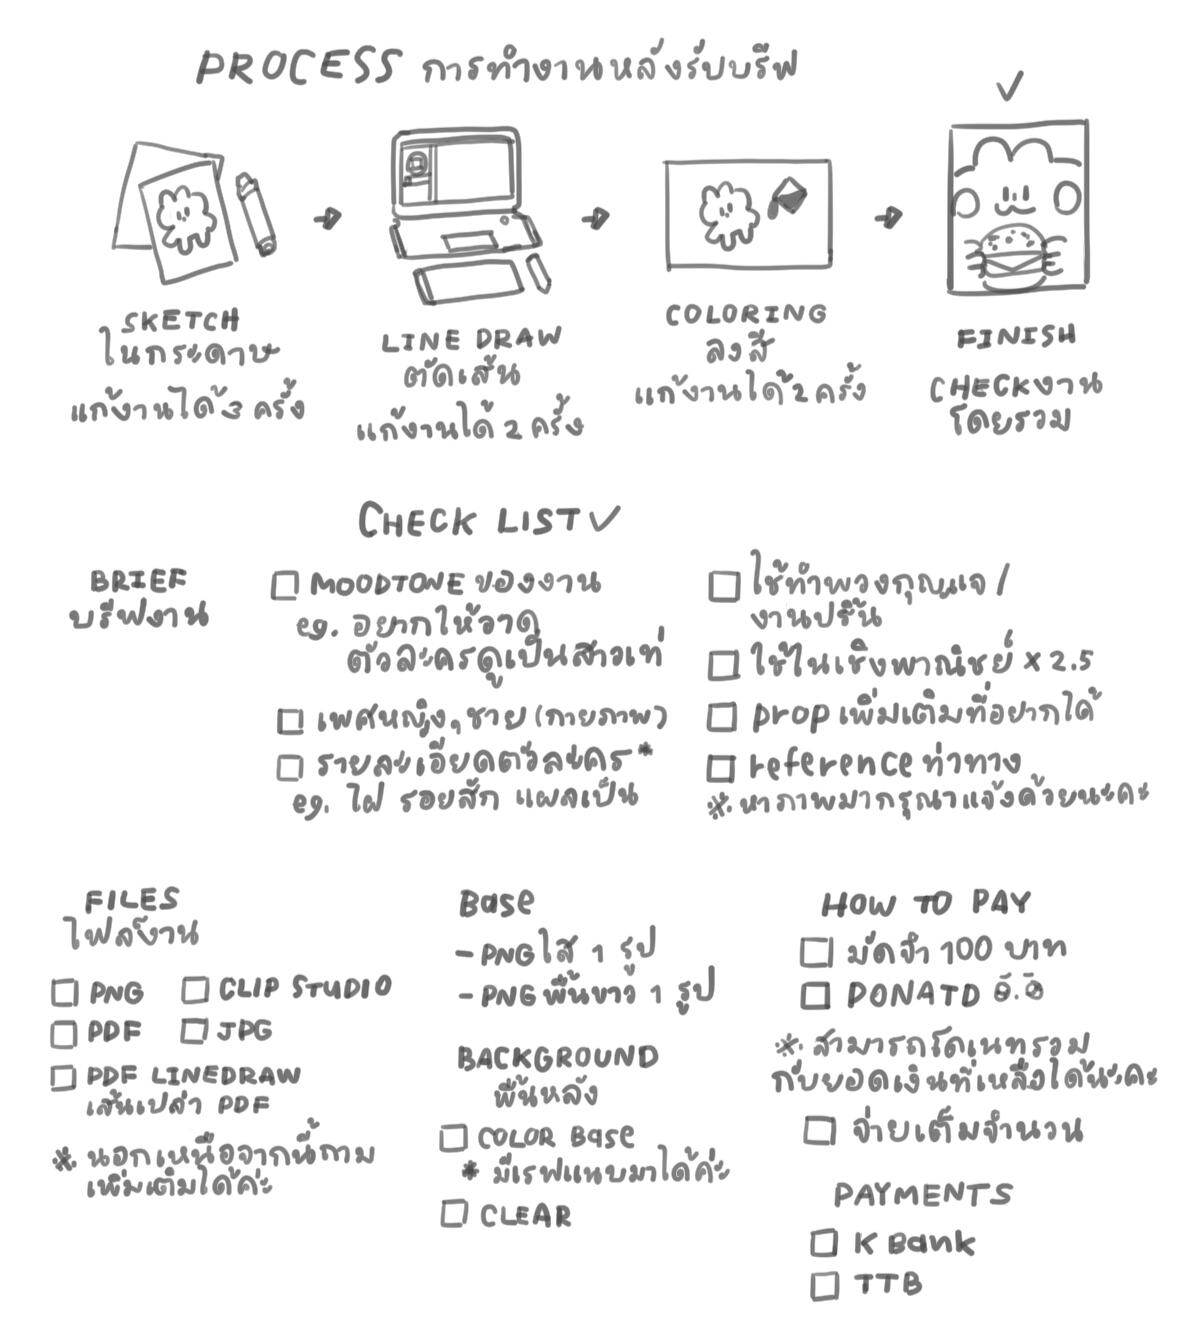 PROCESS การทำงานหลังรับบรีฟ
SKETCH
ในกระดาษ
แก้งานได้ 3 ครั้ง
LINE DRAW
ตัดเส้น
แก้งานได้ 2 ครั้ง
COLORING
ลงสี
แก้งานได้ 2 ครั้ง
FINISH
CHECKงาน
โดยรวม
CHECK LIST✓
BRIEF
บรีฟงาน
MOODTONE ของงาน
eg. อยากให้วาด
ตัวละครดูเป็นสาวเท่
เพศหญิง, ชาย (กายภาพ)
รายละเอียดตัวละคร*
eg. ไฝ รอยสัก แผลเป็น
ใช้ทำพวงกุญแจ /
งานปริ้น
ใช้ในเชิงพาณิชย์ x 2.5
prop เพิ่มเติมที่อยากได้
reference ท่าทาง
※ หาภาพมากรุณาแจ้งด้วยนะคะ
FILES
ไฟล์งาน
PNG
CLIP STUDIO
PDF
JPG
PDF LINEDRAW
เส้นเปล่า PDF
※ นอกเหนือจากนี้ถาม
เพิ่มเติมได้ค่ะ
Base
- PNG ใส 1 รูป
- PNG พื้นขาว 1 รูป
BACKGROUND
พื้นหลัง
COLOR Base
* มีเรฟแนบมาได้ค่ะ
CLEAR
HOW TO PAY
มัดจำ 100 บาท
DONATD
※ สามารถโดเนทรวม
กับยอดเงินที่เหลือได้นะคะ
จ่ายเต็มจำนวน
PAYMENTS
K Bank
TTB